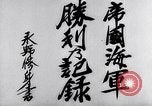 帝國海軍
勝利乃記録
永野修身書